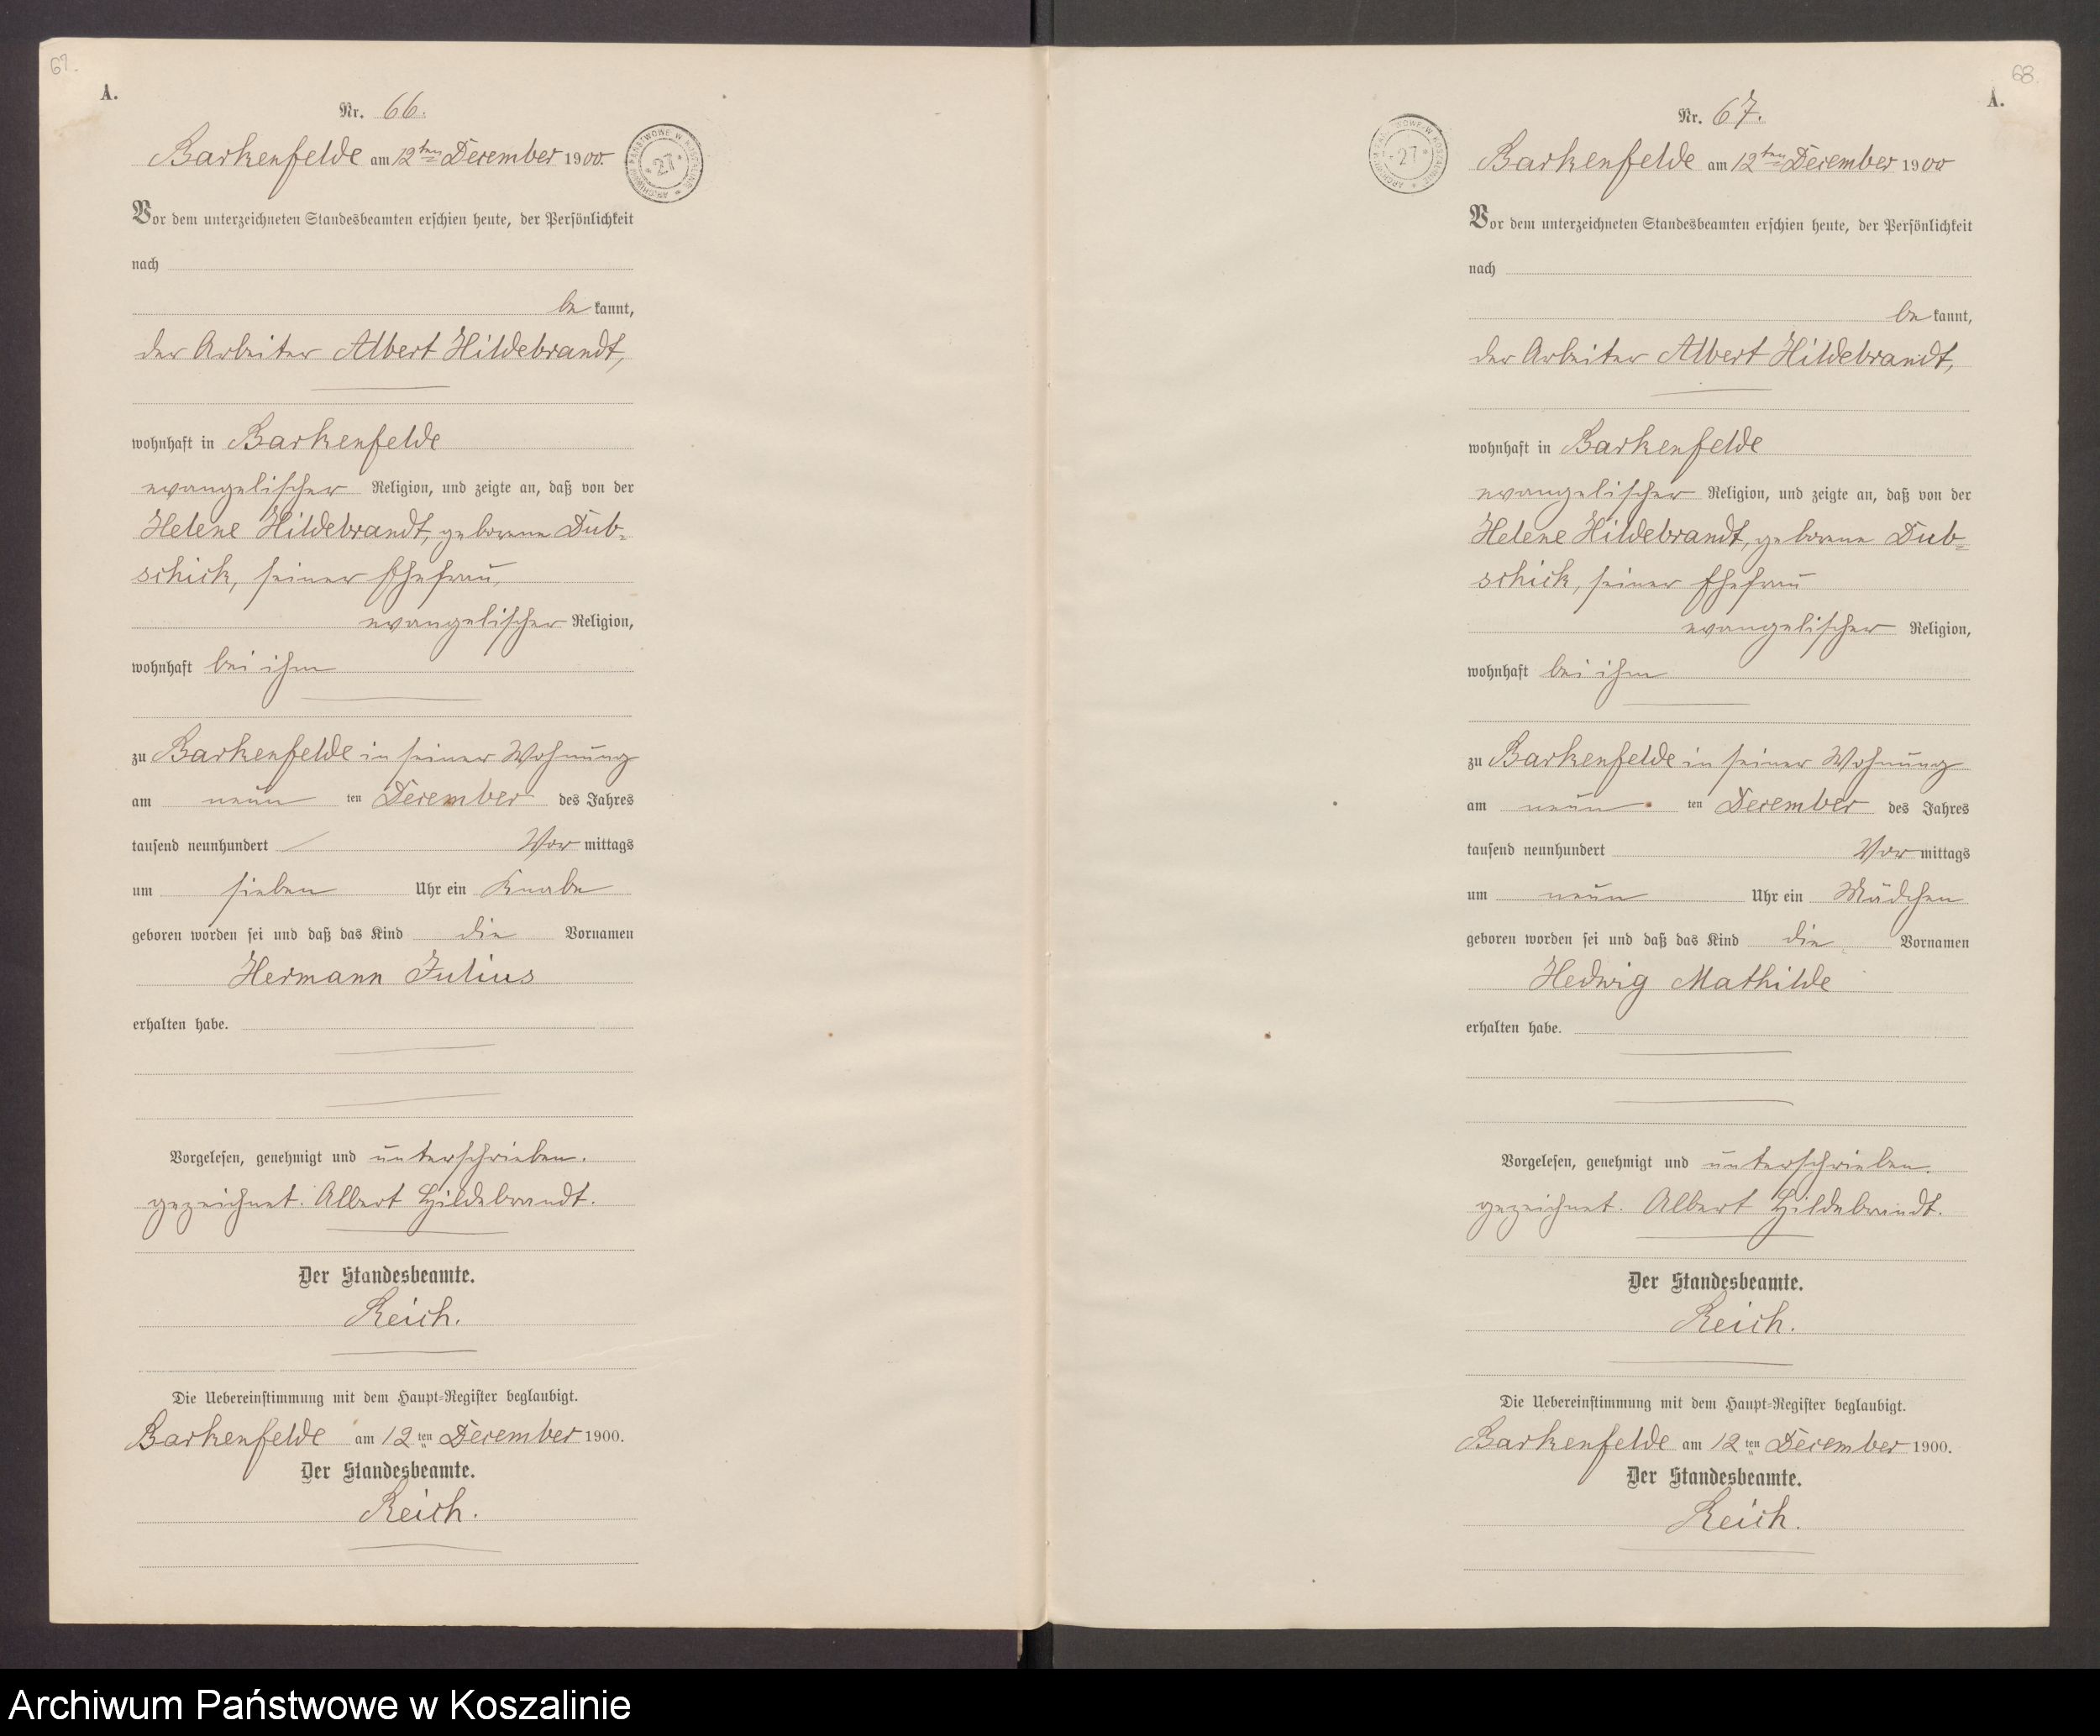 67.
A.
Nr. 66.
Barkenfelde am 12ten December 1900.
Vor dem unterzeichneten Standesbeamten erschien heute, der Persönlichkeit
nach
be kannt,
der Arbeiter Albert Hildebrandt,
wohnhaft in Barkenfelde
evangelischer Religion, und zeigte an, daß von der
Helene Hildebrandt, geborene Dub-
schick, seiner Ehefrau,
evangelischer Religion,
wohnhaft bei ihm
zu Barkenfelde in seiner Wohnung
am neun ten December des Jahres
tausend neunhundert Vor mittags
um sieben Uhr ein Knabe
geboren worden sei und daß das Kind die Vornamen
Hermann Julius
erhalten habe.
Vorgelesen, genehmigt und unterschrieben.
gezeichnet. Albert Hildebrandt.
Der Standesbeamte.
Reich.
Die Uebereinstimmung mit dem Haupt-Register beglaubigt.
Barkenfelde am 12 ten December 1900.
Der Standesbeamte.
Reich.
ARCHIWUM PAŃSTWOWE W KOSZALINIE
27
68
A.
Nr. 67.
Barkenfelde am 12ten December 1900
Vor dem unterzeichneten Standesbeamten erschien heute, der Persönlichkeit
nach
be kannt,
der Arbeiter Albert Hildebrandt,
wohnhaft in Barkenfelde
evangelischer Religion, und zeigte an, daß von der
Helene Hildebrandt, geborene Dub-
schick, seiner Ehefrau
evangelischer Religion,
wohnhaft bei ihm
zu Barkenfelde in seiner Wohnung
am neun ten December des Jahres
tausend neunhundert Vor mittags
um neun Uhr ein Mädchen
geboren worden sei und daß das Kind die Vornamen
Hedwig Mathilde
erhalten habe.
Vorgelesen, genehmigt und unterschrieben.
gezeichnet. Albert Hildebrandt.
Der Standesbeamte.
Reich.
Die Uebereinstimmung mit dem Haupt-Register beglaubigt.
Barkenfelde am 12 ten December 1900.
Der Standesbeamte.
Reich.
ARCHIWUM PAŃSTWOWE W KOSZALINIE
27
Archiwum Państwowe w Koszalinie